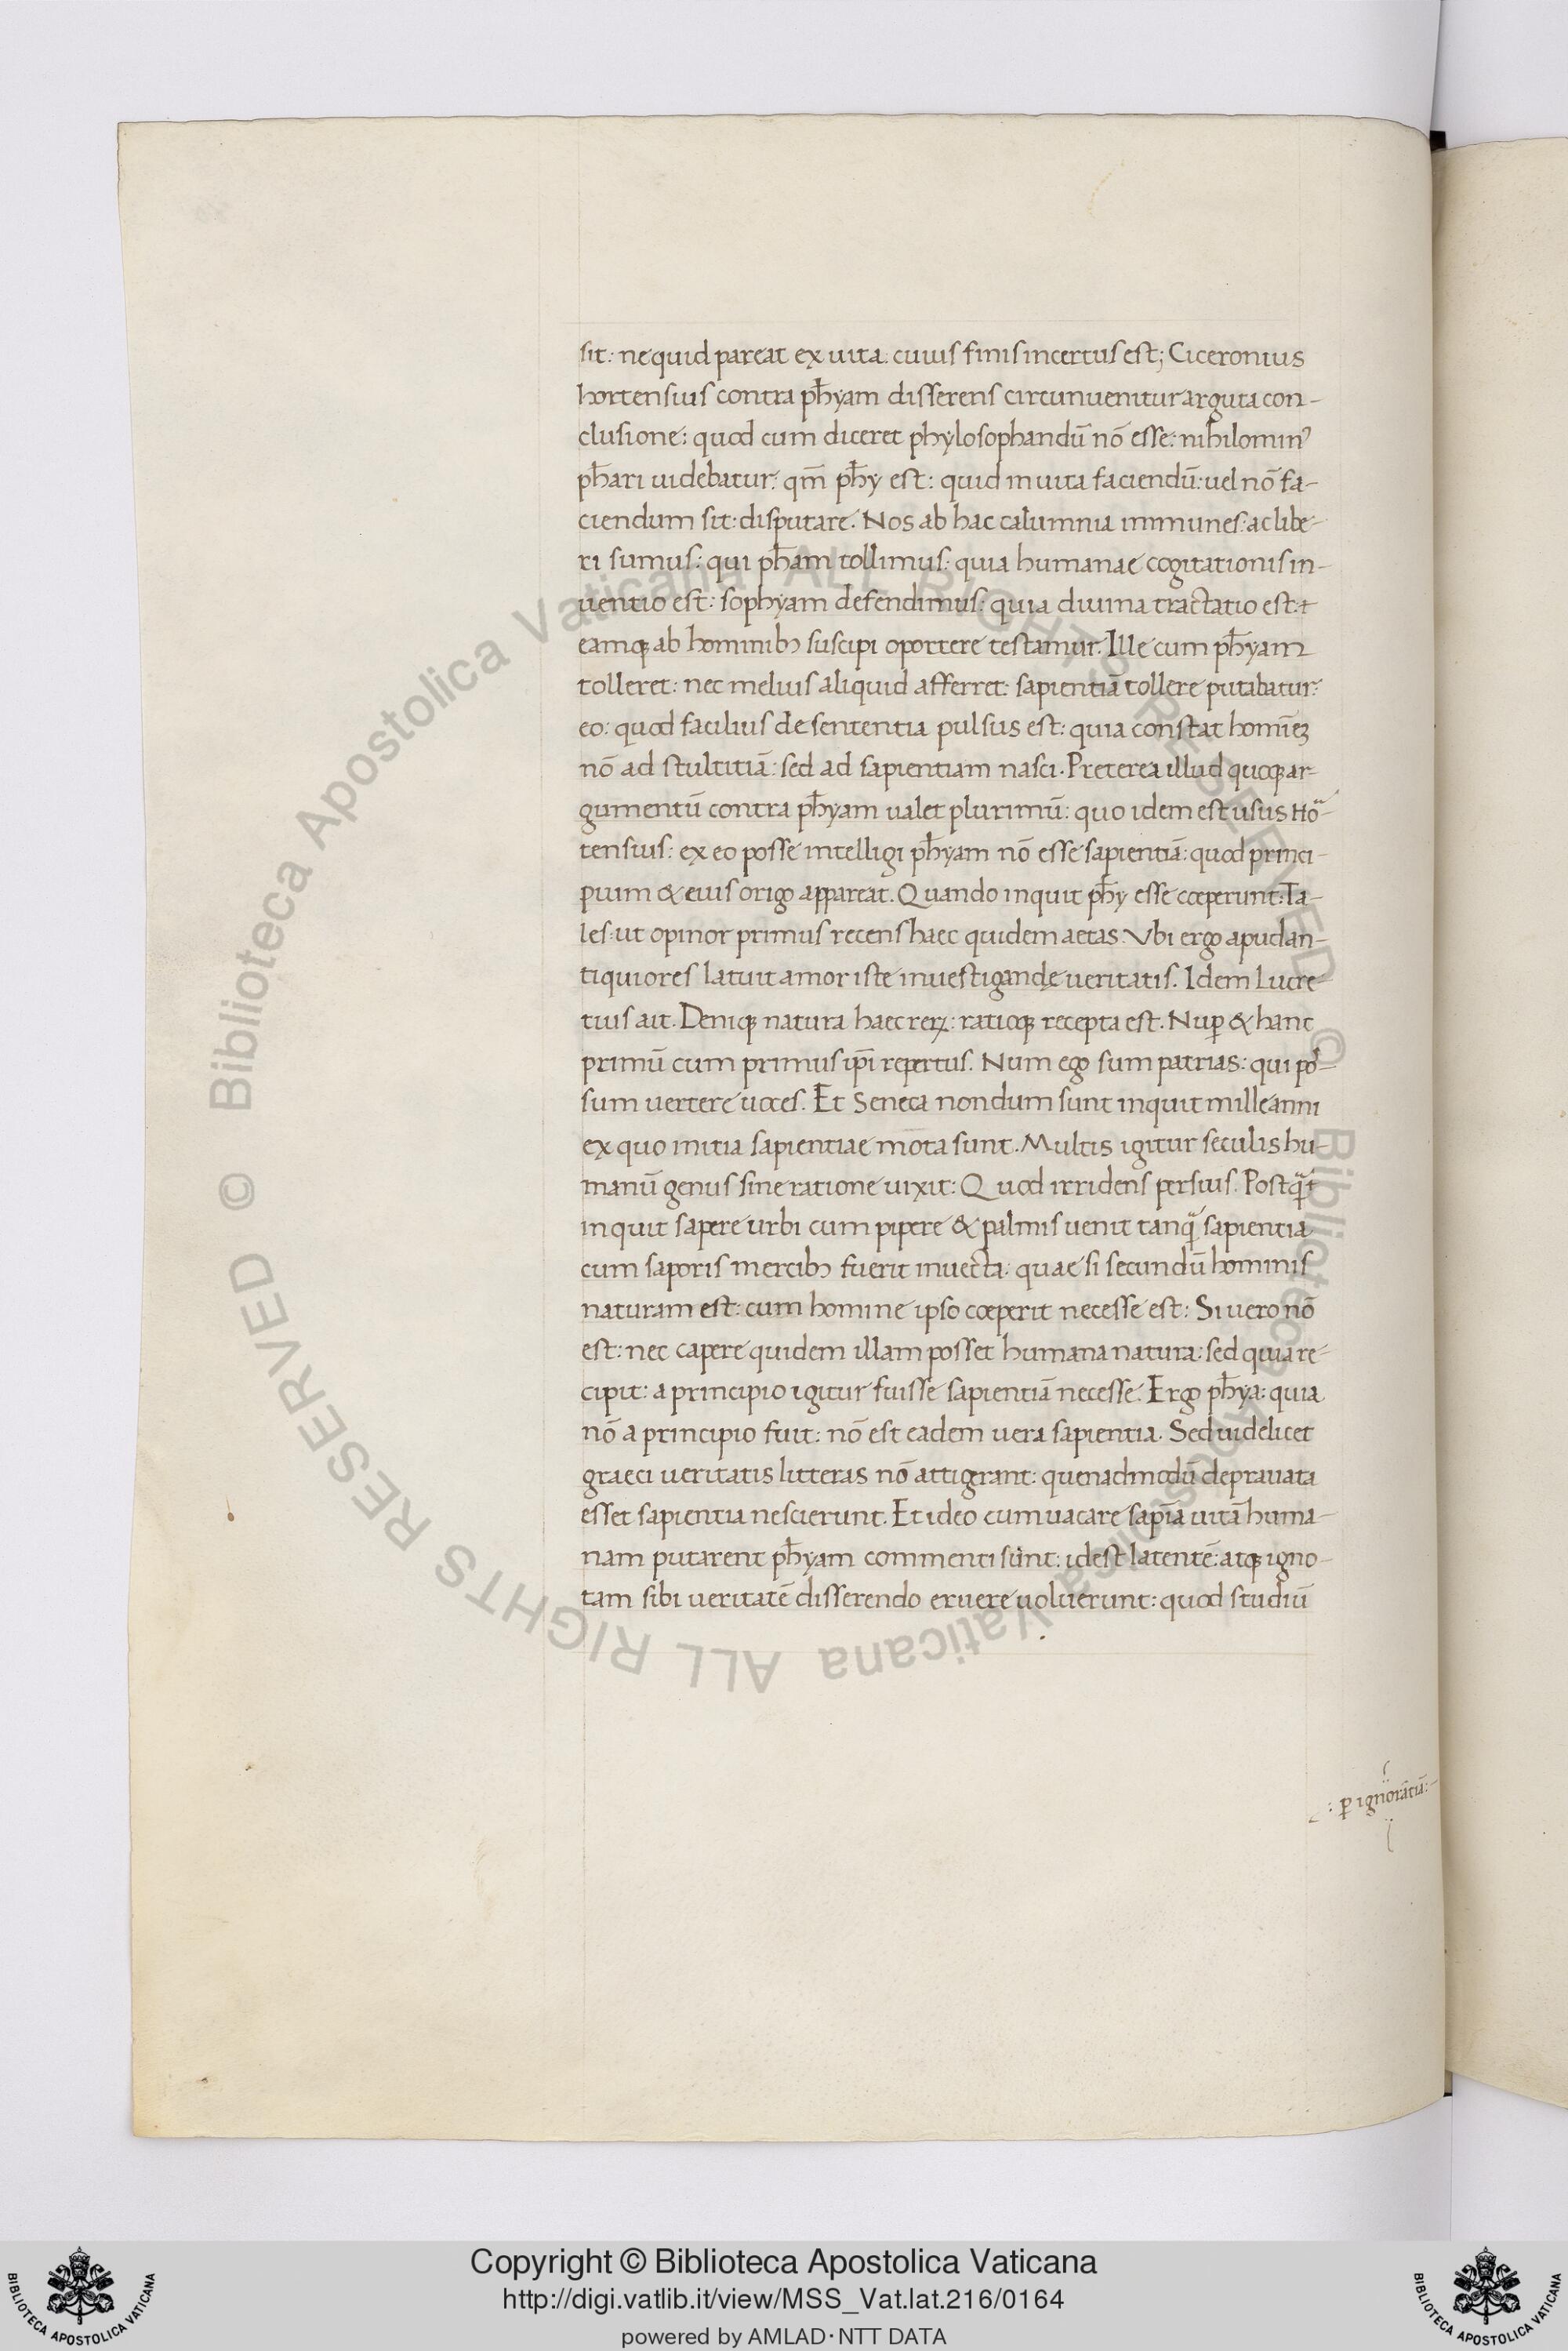 sit: ne quid pareat ex uita: cuius finis incertus est; Ciceronius
hortensius contra ph̄yam disserens circunuenitur arguta con-
clusione: quod cum diceret phylosophandū nō esse: nihilominꝰ
ph̄ari uidebatur: qm̄ ph̄y est: quid in uita faciendū: uel nō fa-
ciendum sit: disputare. Nos ab hac calumnia immunes: ac libe-
ri sumus: qui ph̄am tollimus: quia humanae cogitationis in-
uentio est: sophyam defendimus: quia diuina tractatio est: ⁊
eamqꝫ ab hominibꝫ suscipi oportere testamur. Ille cum ph̄yam
tolleret: nec melius aliquid afferret: sapientiā tollere putabatur:
eo: quod facilius de sententia pulsus est: quia constat homīeꝫ
nō ad stultitiā: sed ad sapientiam nasci. Preterea illud quoqꝫ ar-
gumentū contra ph̄yam ualet plurimū: quo idem est usus Ho-
tensius: ex eo posse intelligi ph̄yam nō esse sapientiā: quod princi-
pium & eius origo appareat. Quando inquit ph̄y esse coeperunt: Ta-
les: ut opinor primus recens haec quidem aetas. Vbi ergo apud an-
tiquiores latuit amor iste inuestigandę ueritatis. Idem Lucre-
tius ait. Deniqꝫ natura haec reꝝ: ratioqꝫ recepta est. Nuꝑ & hanc
primū cum primus ip̄i repertus. Num ego sum patrias: qui po-
sum uertere uoces. Et Seneca nondum sunt inquit mille anni
ex quo initia sapientiae mota sunt. Multis igitur seculis hu-
manū genus sine ratione uixit: Quod irridens persius. Postq̄ ⁊
inquit sapere urbi cum pipere & palmis uenit tanq̄ sapientia
cum saporis mercibꝫ fuerit inuecta: quae si secundū hominis
naturam est: cum homine ipso coeperit necesse est: Si uero nō
est: nec capere quidem illam posset humana natura: sed quia re-
cipit: a principio igitur fuisse sapientiā necesse. Ergo ph̄ya: quia
nō a principio fuit: nō est eadem uera sapientia. Sed uidelicet
graeci ueritatis litteras nō attigerant: quenadmodū deprauata
esset sapientia nescierunt. Et ideo cum uacare sapīa uitā huma-
nam putarent ph̄yam commenti sunt: idest latentē: atqꝫ igno-
tam sibi ueritatē disserendo eruere uoluerunt: quod studiū
: ꝑ ignorātiā: -
© Biblioteca Apostolica Vaticana ALL RIGHTS RESERVED © Biblioteca Apostolica Vaticana ALL RIGHTS RESERVED
Copyright © Biblioteca Apostolica Vaticana
http://digi.vatlib.it/view/MSS_Vat.lat.216/0164
powered by AMLAD・NTT DATA
BIBLIOTECA APOSTOLICA VATICANA
BIBLIOTECA APOSTOLICA VATICANA